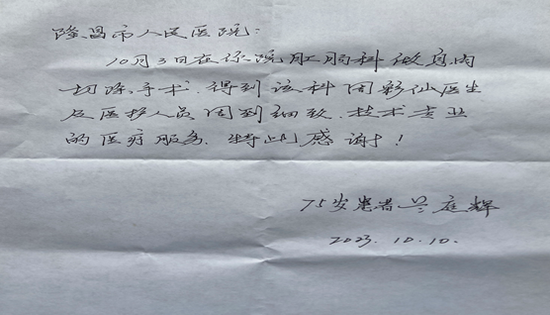 隆昌市人民医院:
10月3日在你院肛肠科做息肉
切除手术.得到该科周彩仙医生
及医护人员周到细致.技术专业
的医疗服务.特此感谢!
75岁患者兰庭辉
2023.10.10.